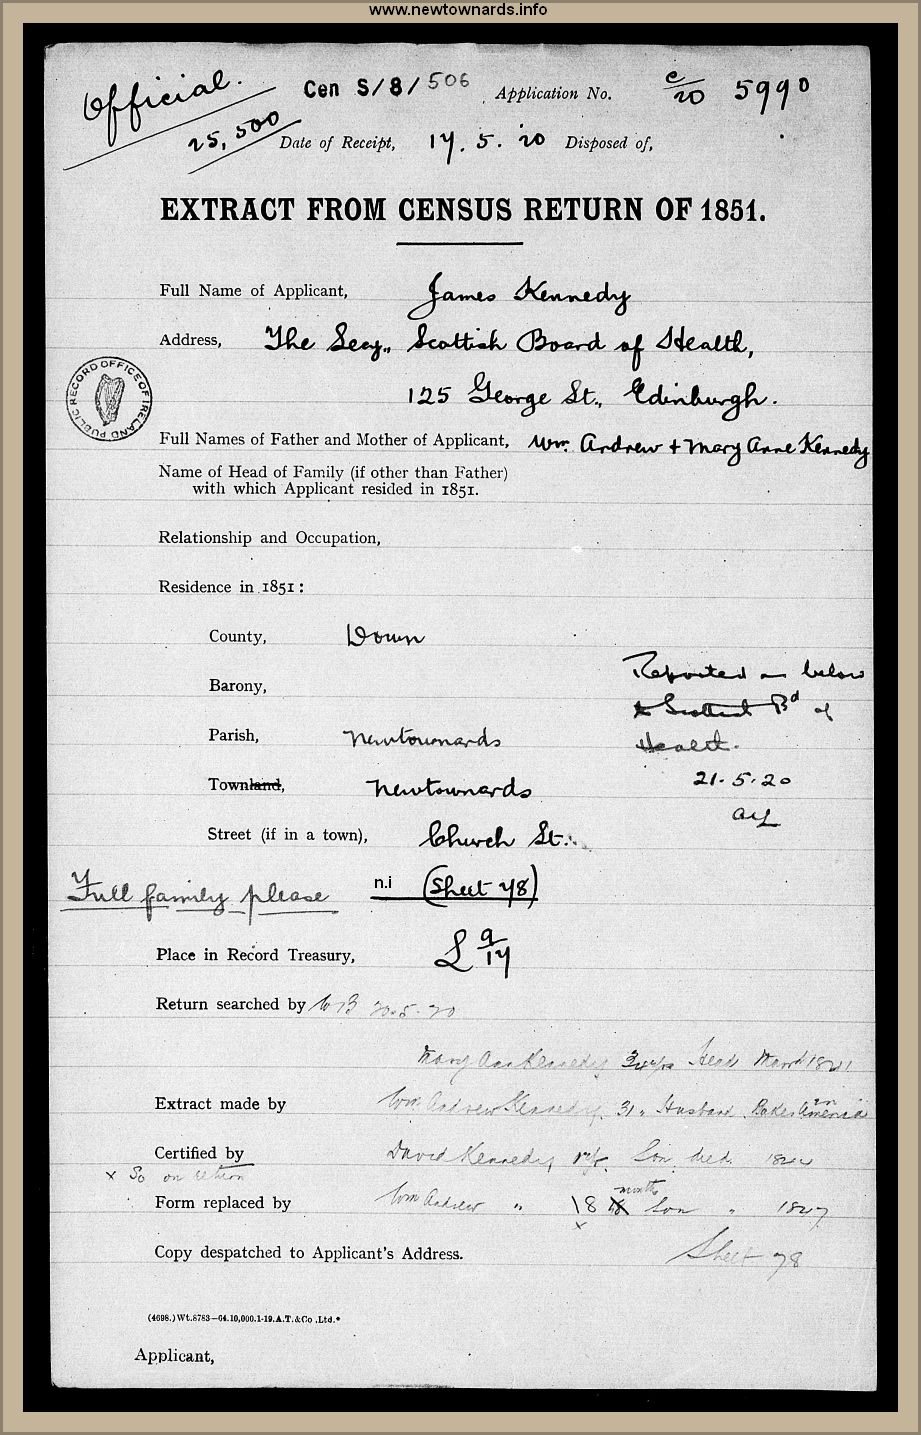 www.newtownards.info
Official.
Cen S/8/506
Application No. C/20 5990
25,500
Date of Receipt, 17.5.20 Disposed of,
EXTRACT FROM CENSUS RETURN OF 1851.
Full Name of Applicant, James Kennedy
Address, The Secy., Scottish Board of Health,
125 George St., Edinburgh.
PUBLIC RECORD OFFICE OF IRELAND
Full Names of Father and Mother of Applicant, Wm. Andrew + Mary Anne Kennedy
Name of Head of Family (if other than Father)
with which Applicant resided in 1851.
Relationship and Occupation,
Residence in 1851:
County, Down
Reported as below
Barony,
to Scottish Bd of
Parish, Newtownards
Health.
Townland, Newtownards
21.5.20
Street (if in a town), Church St.
Full family please n.i (Sheet 78)
Place in Record Treasury, L 9/17
Return searched by WB 20.5.20
Mary Ann Kennedy Head Marrd 1841
Extract made by Wm Andrew Kennedy 31 Husband Baker in America
Certified by David Kennedy Son died
x So on return
Form replaced by Wm Andrew " 18 months Son " 1847
x
Copy despatched to Applicant's Address. Sheet 78
(4698.)Wt.8783—64.10,000.1-19.A.T.&Co.,Ltd.
Applicant,